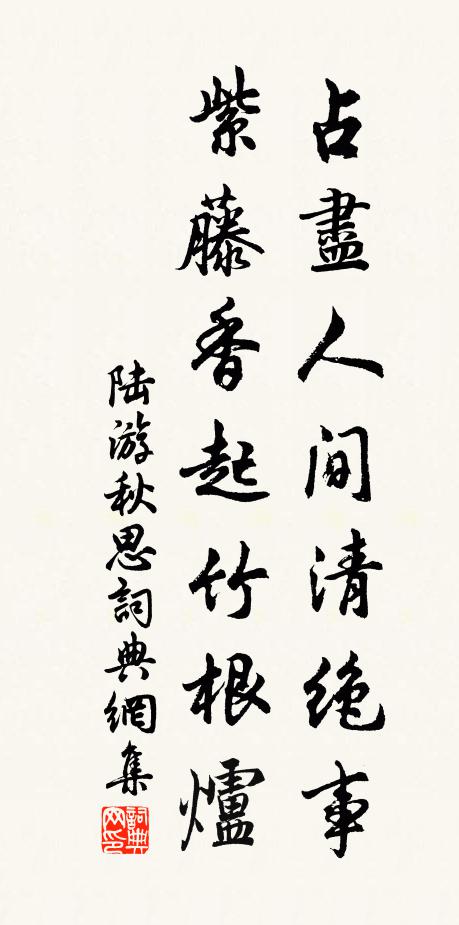 占盡人间清绝事
紫藤香起竹根爐
陆游秋思詞典網集
詞典
网印